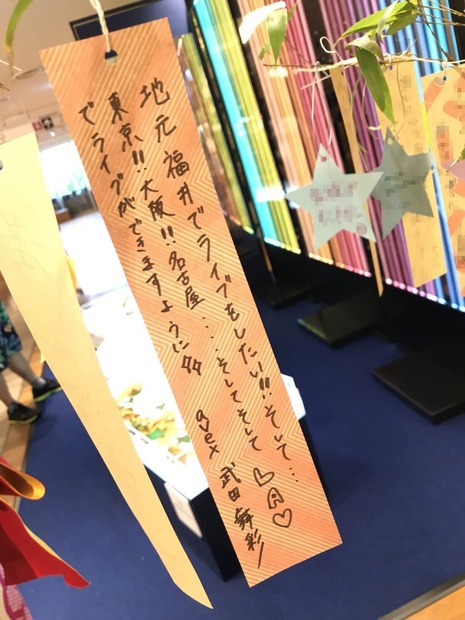 地元福井でライブをしたい!!そして…
東京!!大阪!!名古屋...そしてそして LA♡
でライブができますように
avex 武田舞彩